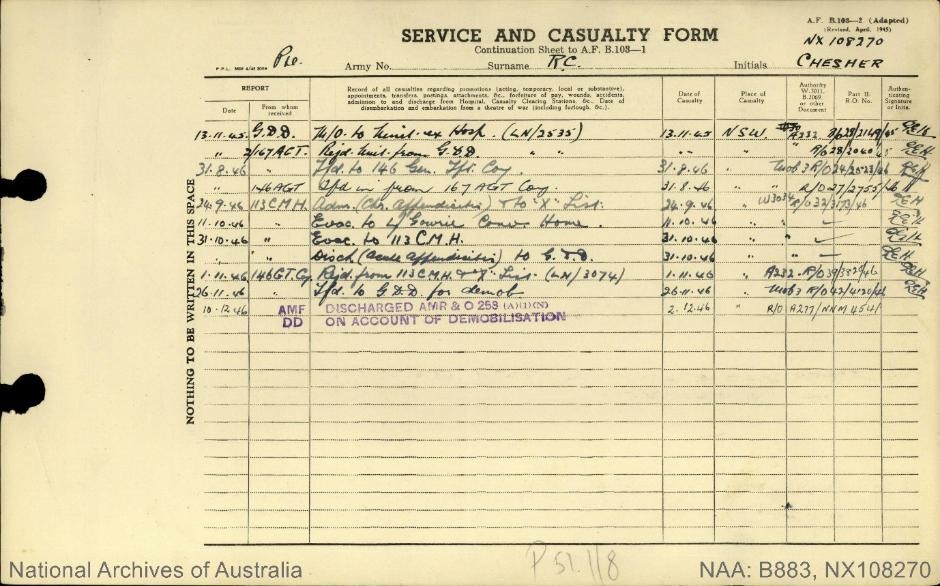 A.F. B.103—2 (Adapted)
(Revised, April, 1945)
SERVICE AND CASUALTY FORM
Continuation Sheet to A.F. B.103—1
NX 108270
Pte.
Army No. Surname R.C. Initials CHESHER
REPORT
Date
From whom received
Record of all casualties regarding promotions (acting, temporary, local or substantive), appointments, transfers, postings, attachments, &c., forfeiture of pay, wounds, accidents, admission to and discharge from Hospital, Casualty Clearing Stations, &c. Date of disembarkation and embarkation from a theatre of war (including furlough, &c.).
Date of Casualty
Place of Casualty
Authority W.3011, B.2069, or other Document
Part II. R.O. No.
Authenticating Signature or Init.
NOTHING TO BE WRITTEN IN THIS SPACE
13.11.45 G.D.D. M/O to Unit ex Hosp. (LN/2535) 13.11.45 NSW A232
" 2/167 AGT. Rejd. Unit from G.D.D. " " " " "
31.8.46 " Tfd. to 146 Gen. Tpt. Coy 31.8.46 " EEH
" 146 AGT Tfd in from 167 AGT Coy. 31.8.46 " " R/O 27/2755/46 EEH
24.9.46 113 C.M.H. Adm. (Chr. Appendicitis) & to "X" List. 24.9.46 " W3034 R/O 32/3173/46 EEH
11.10.46 " Evac. to Lady Gowrie Conv. Home. 11.10.46 " " EEH
31.10.46 " Evac. to 113 C.M.H. 31.10.46 " " EEH
" " Disch (Acute Appendicitis) to G.D.D. 31.10.46 " " EEH
1.11.46 146 GT. Coy Rejd. from 113 C.M.H. & "X" List (LN/3074) 1.11.46 " A232 R/O 39/3829/46 EEH
26.11.46 " Tfd. to G.D.D. for demob 26.11.46 " Mob 3 R/O 42/4120/46 EEH
10.12.46 AMF DD DISCHARGED AMR & O 253 (A)(1)(X) 2.12.46 " R/O A277/NNM 4541
ON ACCOUNT OF DEMOBILISATION
P 51.118
National Archives of Australia
NAA: B883, NX108270